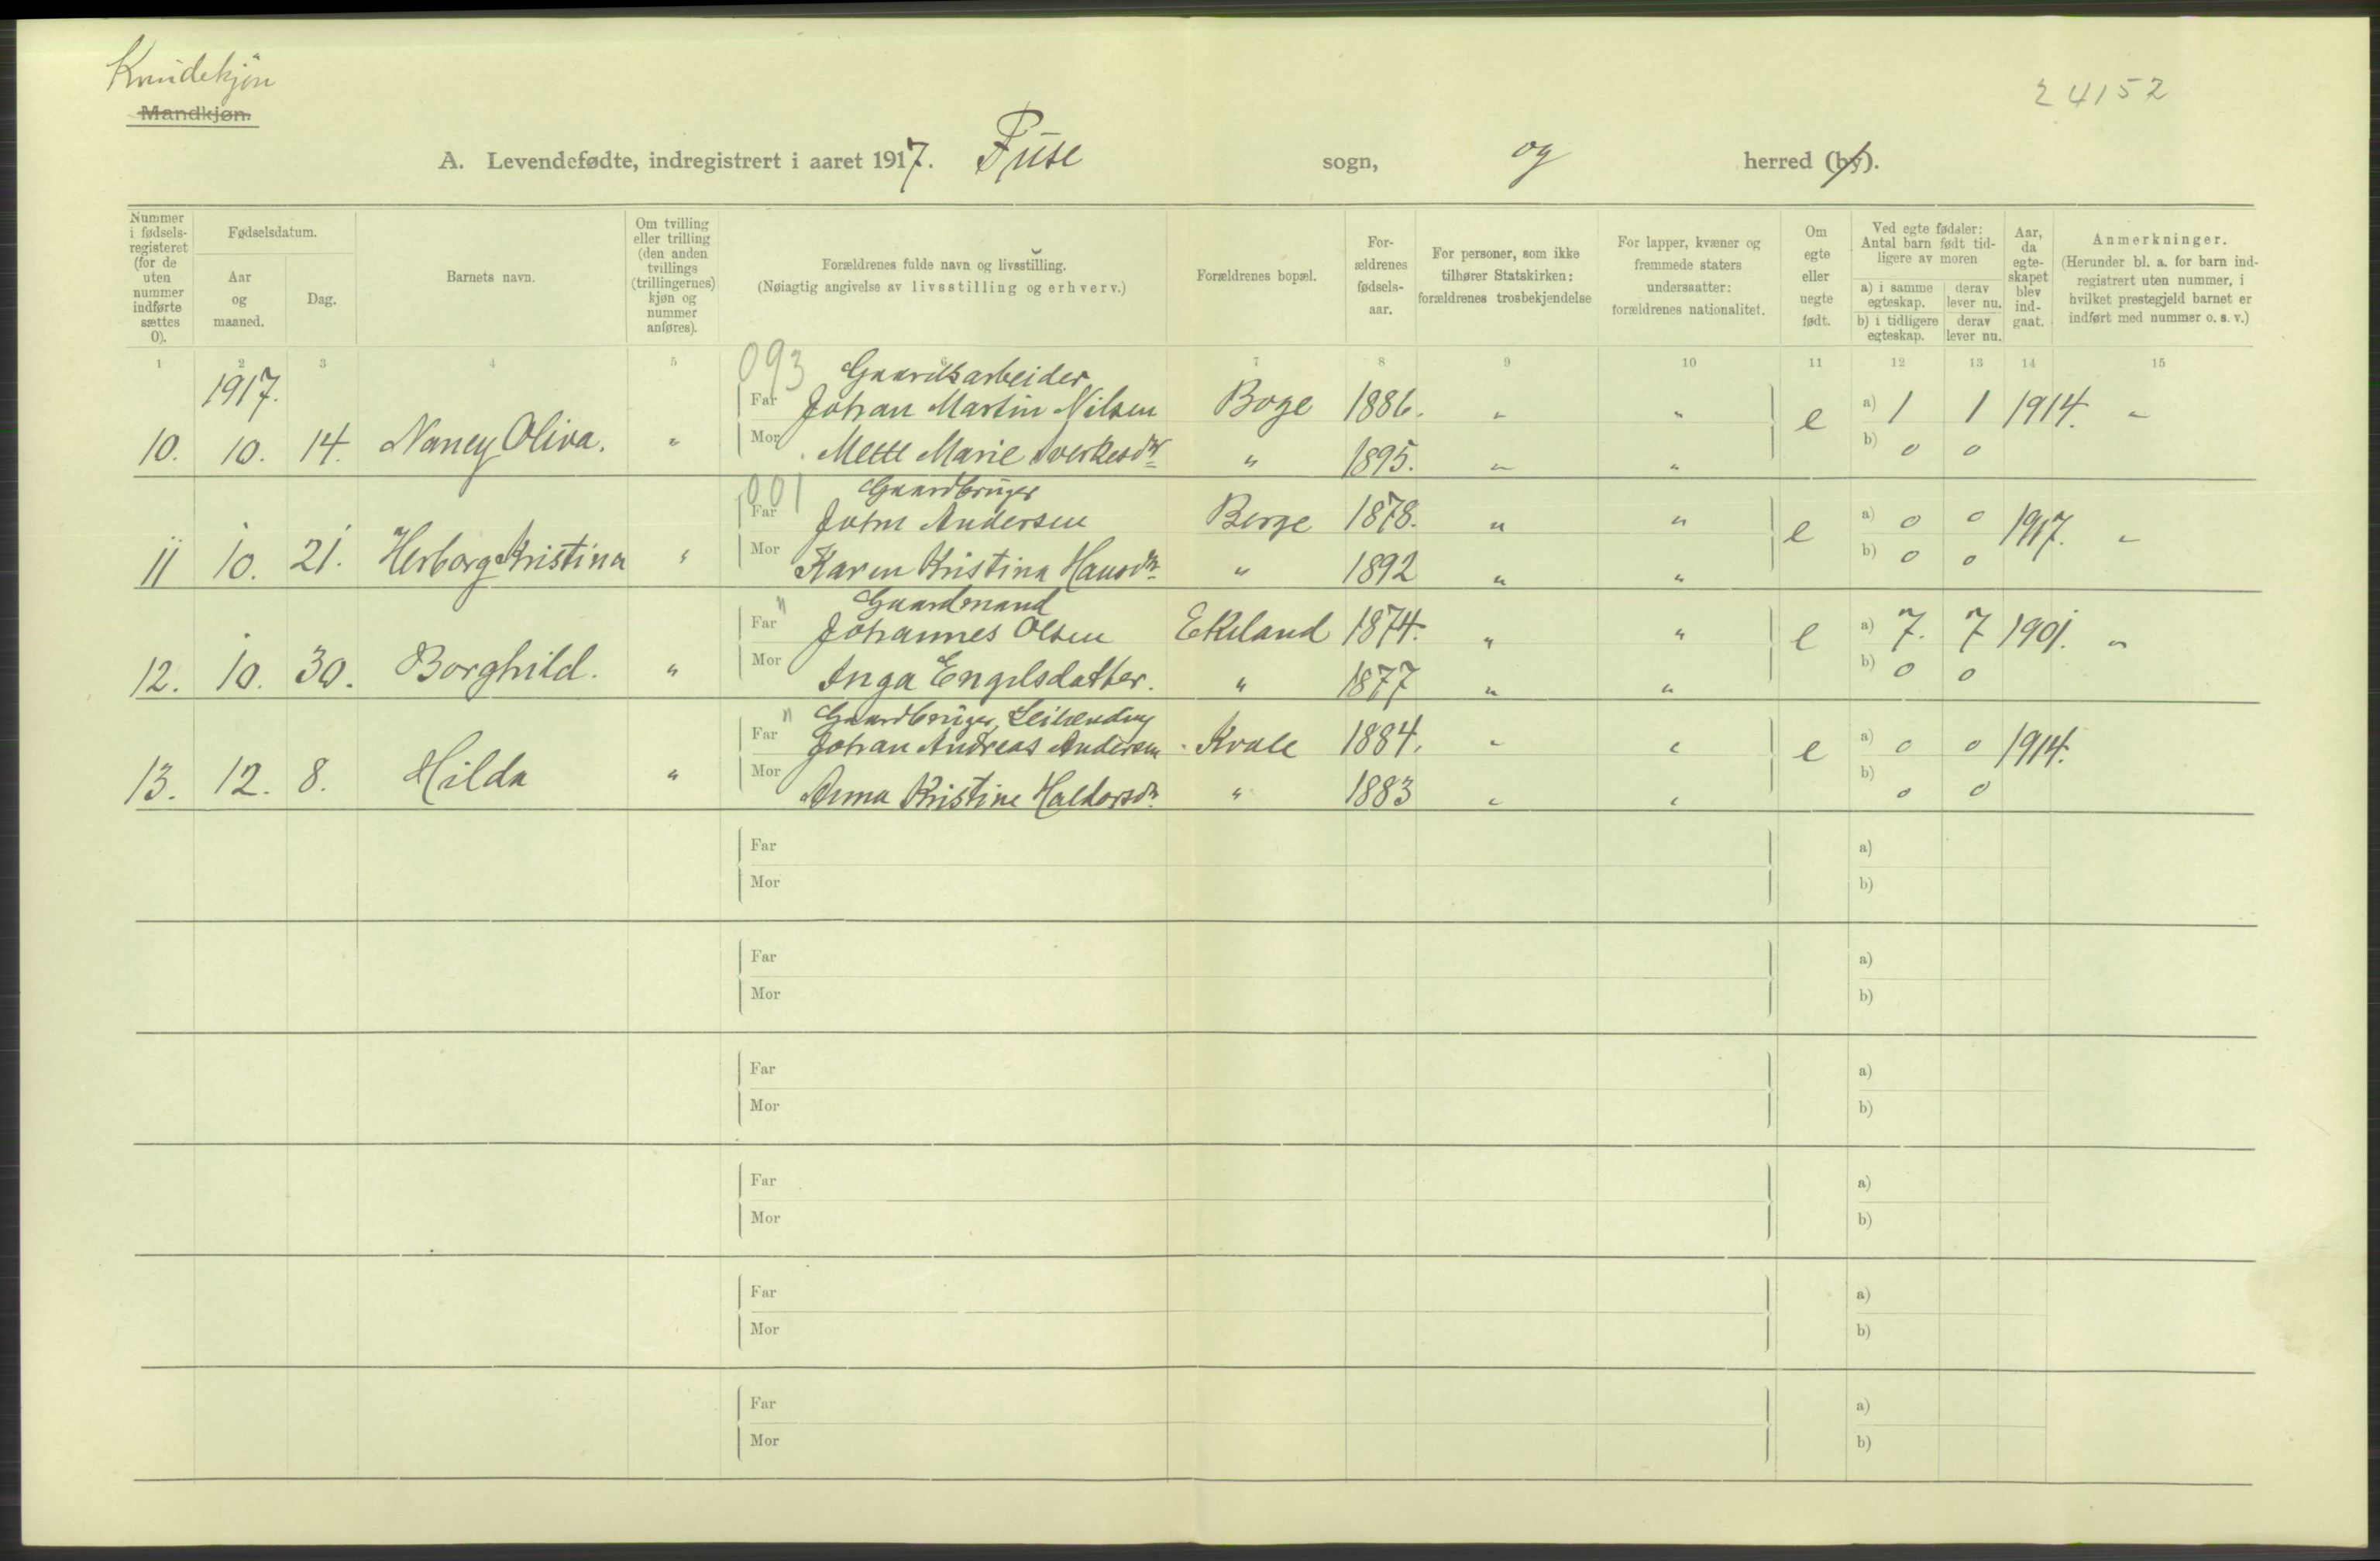 Kvindekjøn
Mandkjøn.
24152
A. Levendefødte, indregistrert i aaret 1917. Fuse sogn, og herred (by).
Nummer i fødselsregisteret (for de uten nummer indførte sættes 0).
Fødselsdatum.
Aar og maaned.
Dag.
Barnets navn.
Om tvilling eller trilling (den anden tvillings (trillingernes) kjøn og nummer anføres).
Forældrenes fulde navn og livsstilling.
(Nøiagtig angivelse av livsstilling og erhverv.)
Forældrenes bopæl.
Forældrenes fødselsaar.
For personer, som ikke tilhører Statskirken: forældrenes trosbekjendelse
For lapper, kvæner og fremmede staters undersaatter: forældrenes nationalitet.
Om egte eller uegte født.
Ved egte fødsler: Antal barn født tidligere av moren
a) i samme egteskap. derav lever nu.
b) i tidligere egteskap. derav lever nu.
Aar, da egteskapet blev indgaat.
Anmerkninger.
(Herunder bl. a. for barn indregistrert uten nummer, i hvilket prestegjeld barnet er indført med nummer o. s. v.)
1 2 3 4 5 6 7 8 9 10 11 12 13 14 15
1917. 093 Gaardsarbeider
Far Johan Martin Nilsen Boge 1886. " " e a) 1 1 1914. "
10. 10. 14. Nancy Oliva. " Mor Mette Marie Sverkesdtr " 1895. " " b) 0 0
001 Gaardbruger
Far John Andersen Berge 1878. " " e a) 0 0 1917. "
11 10. 21. Herborg Kristina " Mor Karen Kristina Hansdtr " 1892 " " b) 0 0
" Gaardmand
Far Johannes Olsen Ekeland 1874. " " e a) 7. 7 1901. "
12. 10. 30. Borghild. " Mor Inga Engelsdatter. " 1877 " " b) 0 0
" Gaardbruger, Leilending
Far Johan Andreas Andersen Kvale 1884. " " e a) 0 0 1914.
13. 12. 8. Hilda " Mor Anna Kristine Haldorsdr " 1883 " " b) 0 0
Far a)
Mor b)
Far a)
Mor b)
Far a)
Mor b)
Far a)
Mor b)
Far a)
Mor b)
Far a)
Mor b)